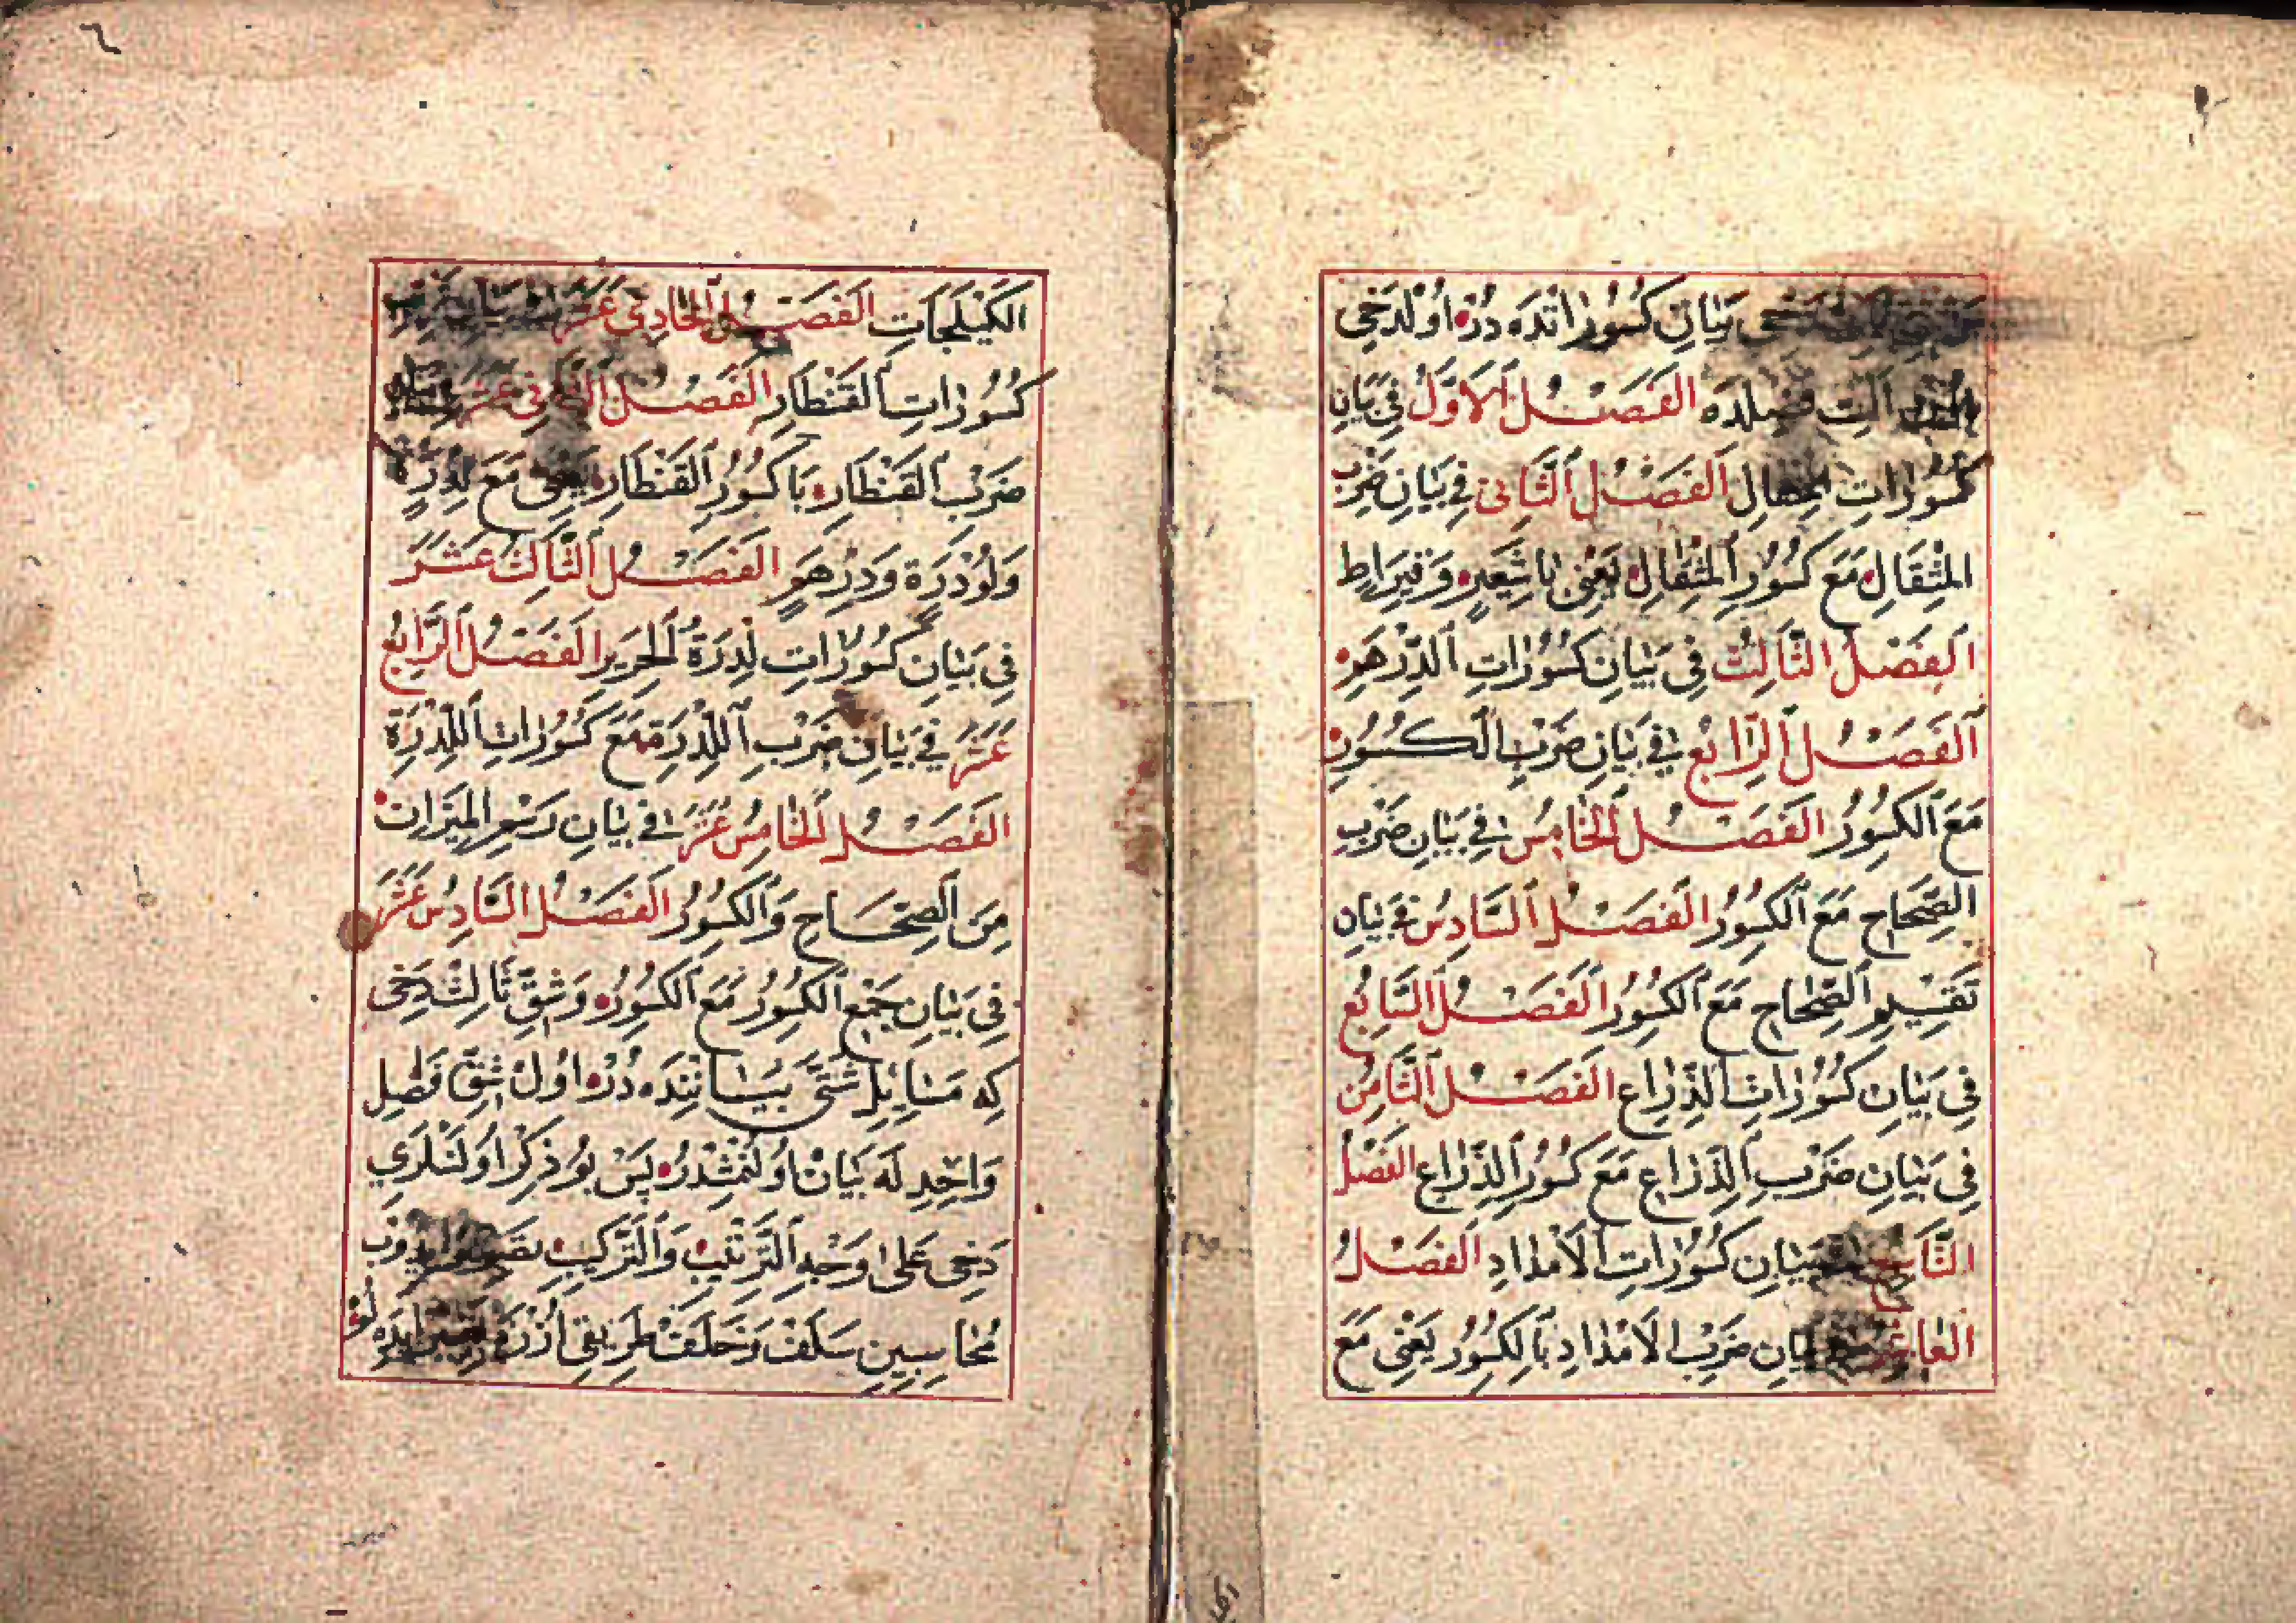 بَيَانِ كُسُورَاتْنَدَه دُرْ اُولْدَخِي
الفَصْلُ الأَوَّلُ فِي بَيَانِ
كُسُورَاتِ الْمِثْقَالِ الفَصْلُ الثَّانِي فِي بَيَانِ ضَرْبِ
المِثْقَالِ مَعَ كُسُورِ المِثْقَالِ يَعْنِي بَا شَعِيرٍ وَقِيرَاطٍ
الفَصْلُ الثَّالِثُ فِي بَيَانِ كُسُورَاتِ الدِّرْهَمِ
الفَصْلُ الرَّابِعُ فِي بَيَانِ ضَرْبِ الْكُسُورِ
مَعَ الكُسُورِ الفَصْلُ الخَامِسُ فِي بَيَانِ ضَرْبِ
الصِّحَاحِ مَعَ الكُسُورِ الفَصْلُ السَّادِسُ فِي بَيَانِ
تَقْسِيمِ الصِّحَاحِ مَعَ الكُسُورِ الفَصْلُ السَّابِعُ
فِي بَيَانِ كُسُورَاتِ الذِّرَاعِ الفَصْلُ الثَّامِنُ
فِي بَيَانِ ضَرْبِ الذِّرَاعِ مَعَ كُسُورِ الذِّرَاعِ الفَصْلُ
التَّاسِعُ بَيَانِ كُسُورَاتِ الأَمْدَادِ الفَصْلُ
العَاشِرُ بَيَانِ ضَرْبِ الأَمْدَادِ بَالكُسُورِ يَعْنِي مَعَ
٦
الكَيْلَجَاتِ الفَصْلُ الحَادِي عَشَرَ
كُسُورَاتِ القَنْطَارِ الفَصْلُ الثَّانِي عَشَرَ
ضَرْبِ القَنْطَارِ بَا كُسُورِ القَنْطَارِ يَعْنِي مَعَ لِدْرَةٍ
وَلَوْدْرَةٍ وَدِرْهَمٍ الفَصْلُ الثَّالِثَ عَشَرَ
فِي بَيَانِ كُسُورَاتِ لِدْرَةُ الحَرِيرِ الفَصْلُ الرَّابِعُ
عَشَرَ فِي بَيَانِ ضَرْبِ اللِّدْرَةِ مَعَ كُسُورَاتِ اللِّدْرَةِ
الفَصْلُ الخَامِسُ عَشَرَ فِي بَيَانِ رَسْمِ المِيزَانِ
مِنَ الصِّحَاحِ وَالكُسُورِ الفَصْلُ السَّادِسُ عَشَرَ
فِي بَيَانِ جَمْعِ الكُسُورِ مَعَ الكُسُورِ وَشِقِّ ثَالِثْ دَخِي
كِه مَسَايِلِ شَتَّى بَيَانِنْدَه دُرْ اوُلْ شِقّ فَصْلِ
وَاحِدِ لَه بَيَانْ اوُلَنْمِشْدُرْ پَسْ بُو ذِكْرْ اوُلَنْلَرِي
دَخِي عَلَى وَجْهِ التَّرْتِيبْ وَالتَّرْكِيبْ
مُحَاسِبِينِ سَلَفْ وَخَلَفْ طَرِيقِي اُزْرَه